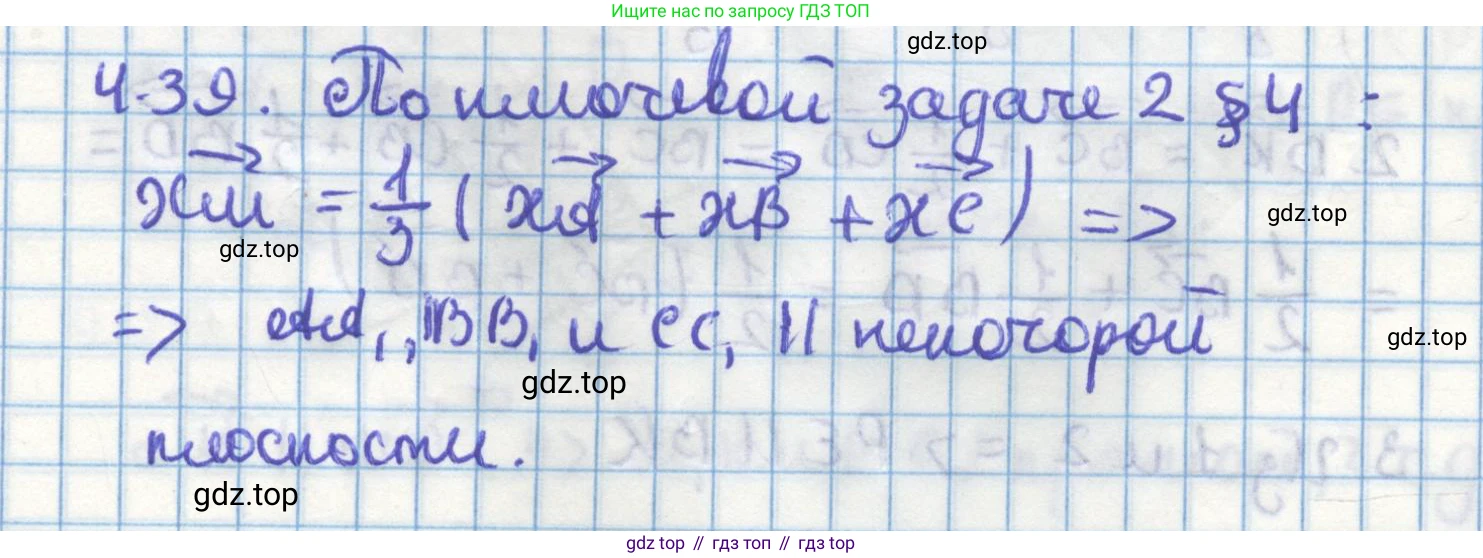 Ищите нас по запросу ГДЗ ТОП
gdz.top
4.39. По ключевой задаче 2 §4 :
XM = 1/3 (XA + XB + XC) =>
gdz.top
gdz.top
=> AA₁, BB₁ и CC₁ || некоторой
gdz.top
gdz.top
плоскости.
gdz.top
gdz.top // гдз топ // гдз.top